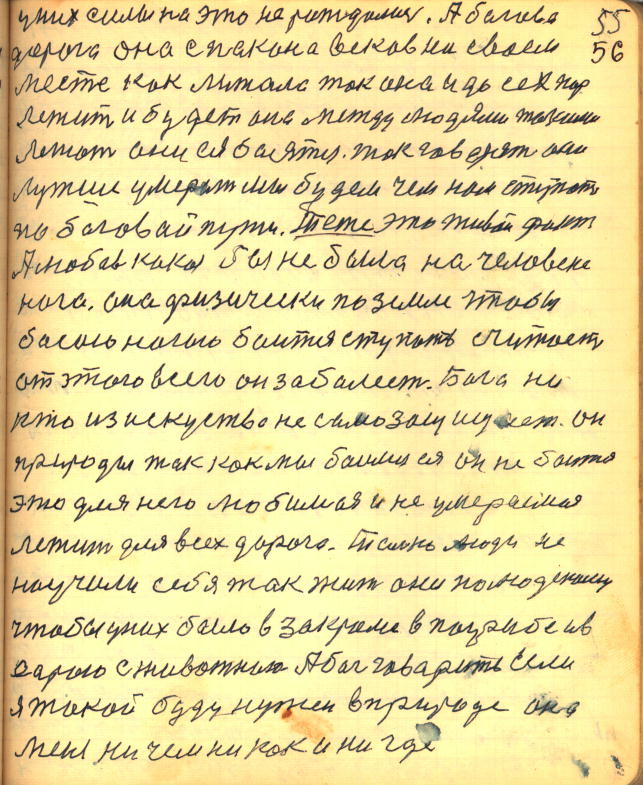 у них силы на это не рождалися. А богова 55
дорога она спакона веков на своем 56
месте как лижала так она и до сех пор
лежит и будет она между людями такими
лежат они ея баятся. так говорят они
лучше умерать мы будем чем нам ступать
по боговай пути. Тете это живой факт
А любов какой бы не была на человеке
нога. она физически по земле чтобы
босою ногою боится ступать считает
от этого всего он заболеет. Бога ни
кто из искуство не самозащищает. он
природы так как мы боимся он не боится
это для него любимая и не умераемая
лежит для всех дорога. люди не
научили себя так жит они по людскому
чтобы у них было в закроме в пагрибе и в
сараю с животною А бог говарить если
я такой буду нужен в природе она
меня ни чем ни как и ни где